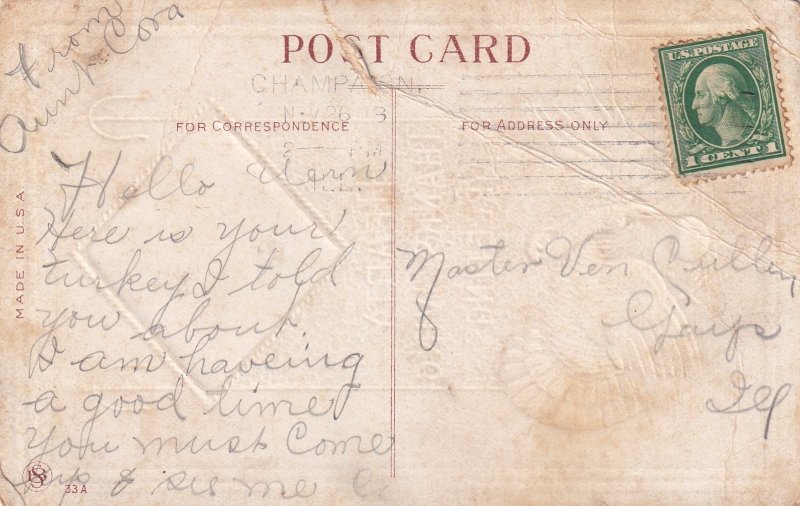 From
Aunt Cora
POST CARD
U.S. POSTAGE
1 CENT 1
CHAMPAIGN,
NOV 26 13
2 — PM
ILL.
FOR CORRESPONDENCE
FOR ADDRESS ONLY
MADE IN U.S.A.
Hello Vern
Here is your
turkey I told
you about.
I am haveing
a good time
you must come
up & see me
Master Vern Cullen
Gays
Ill
33A